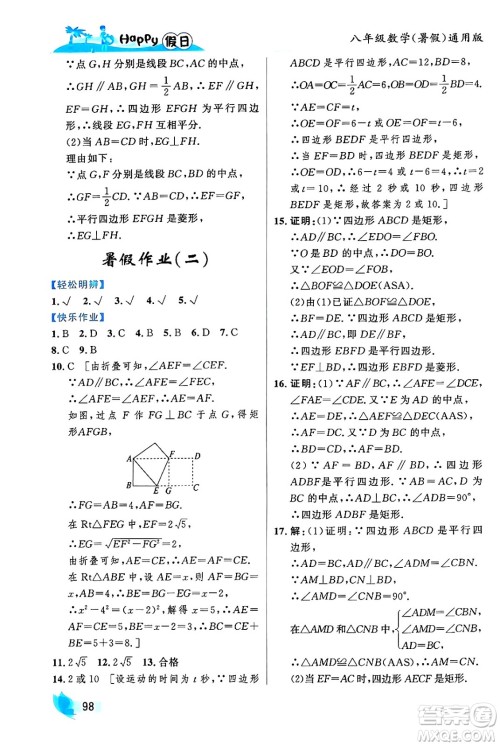 Happy 假日
八年级数学(暑假)通用版
∵点 G,H 分别是线段 BD,BC 的中点,
∴GH∥CD,GH=1/2CD,
∴EF∥GH,EF=GH,
∴四边形 EFGH 是平行四边形,
∴线段 EG,FH 互相平分.
(2)当 AB=CD 时,EG⊥FH.
理由如下:
∵点 G,F 分别是线段 BD,AD 的中点,
∴GF=1/2AB,
∵EF=1/2CD,AB=CD,
∴GF=EF,
∴平行四边形 EFGH 是菱形,
∴EG⊥FH.
暑假作业(二)
【轻松明辨】
1.√ 2.√ 3.√ 4.√ 5.√
【快乐作业】
1.B 2.D 3.C 4.B 5.D 6.D 7.C
8.C 9.B
10.C [由折叠可知,∠AEF=∠CEF.
∵AD∥BC,∴∠AFE=∠CEF,
∴∠AFE=∠AEF,∴AE=AF.
如图,过点 F 作 FG⊥BC 于点 G,得矩形 AFGB,
A F D
B E G C
∴FG=AB=4,AF=BG=AE.
在 Rt△EFG 中,EF=2√5,
∴EG=√(EF²−FG²)=2.
由折叠可知,AE=EC.
在 Rt△ABE 中,AE=x,BE=x−2,
∴x²−4²=(x−2)²,解得 x=5,
∴BC=5+5−2=8.]
11.2√5 12.2√5 13.合格
14.2 或 10 [设运动的时间为 t 秒.∵四边形
98
ABCD 是平行四边形,AC=12,BD=8,
∴OA=OC=6,OB=OD=4.∵AE=CF=t,
∴OE=OF=6−t 或 OE=OF=t−6.
∵OB=OD,OE=OF,
∴四边形 BEDF 是平行四边形.
∵四边形 BEDF 是矩形,∴OE=OF=OB=OD=4,
∴6−t=4 或 t−6=4,∴t=2 或 t=10,
∴经过 2 秒或 10 秒,四边形 BEDF 为矩形.故答案为 2 或 10.]
15.证明:(1)∵四边形 ABCD 是矩形,
∴AD∥BC,∴∠ADB=∠CBD.
∵O 是 BD 的中点,∴OB=OD.
∵∠BOF=∠DOE,
∴△BOF≌△DOE(ASA).
(2)由(1)已证△BOF≌△DOE,
∴BF=DE.
∵四边形 ABCD 是矩形,
∴AD∥BC,即 DE∥BF,
∴四边形 EBFD 是平行四边形.
∵EF⊥BD,∴四边形 EBFD 是菱形.
16.证明:(1)∵AF∥BC,∴∠AFE=∠DCE,∠EAF=∠EDC.∵E 为 AD 的中点,
∴AE=DE,∴△AFE≌△DCE(AAS),
∴AF=DC.∵D 为 BC 的中点,
∴BD=DC,∴AF=BD.
(2)∵AF∥BC,AF=BD,∴四边形 ADBF 是平行四边形.
∵AB=AC,BD=CD,
∴AD⊥BC,∴∠ADB=90°,
∴四边形 ADBF 是矩形.
17.解:(1)证明:∵四边形 ABCD 是平行四边形,
∴AD∥BC,AD=BC,
∴∠ADM=∠CBN.
∵AE⊥BD,CF⊥BD,
∴∠AMD=∠CNB=90°.
在△AMD 和△CNB 中,{∠ADM=∠CBN, ∠AMD=∠CNB, AD=CB,
∴△AMD≌△CNB(AAS),
∴AM=CN.
(2)四边形 AECF 是矩形.